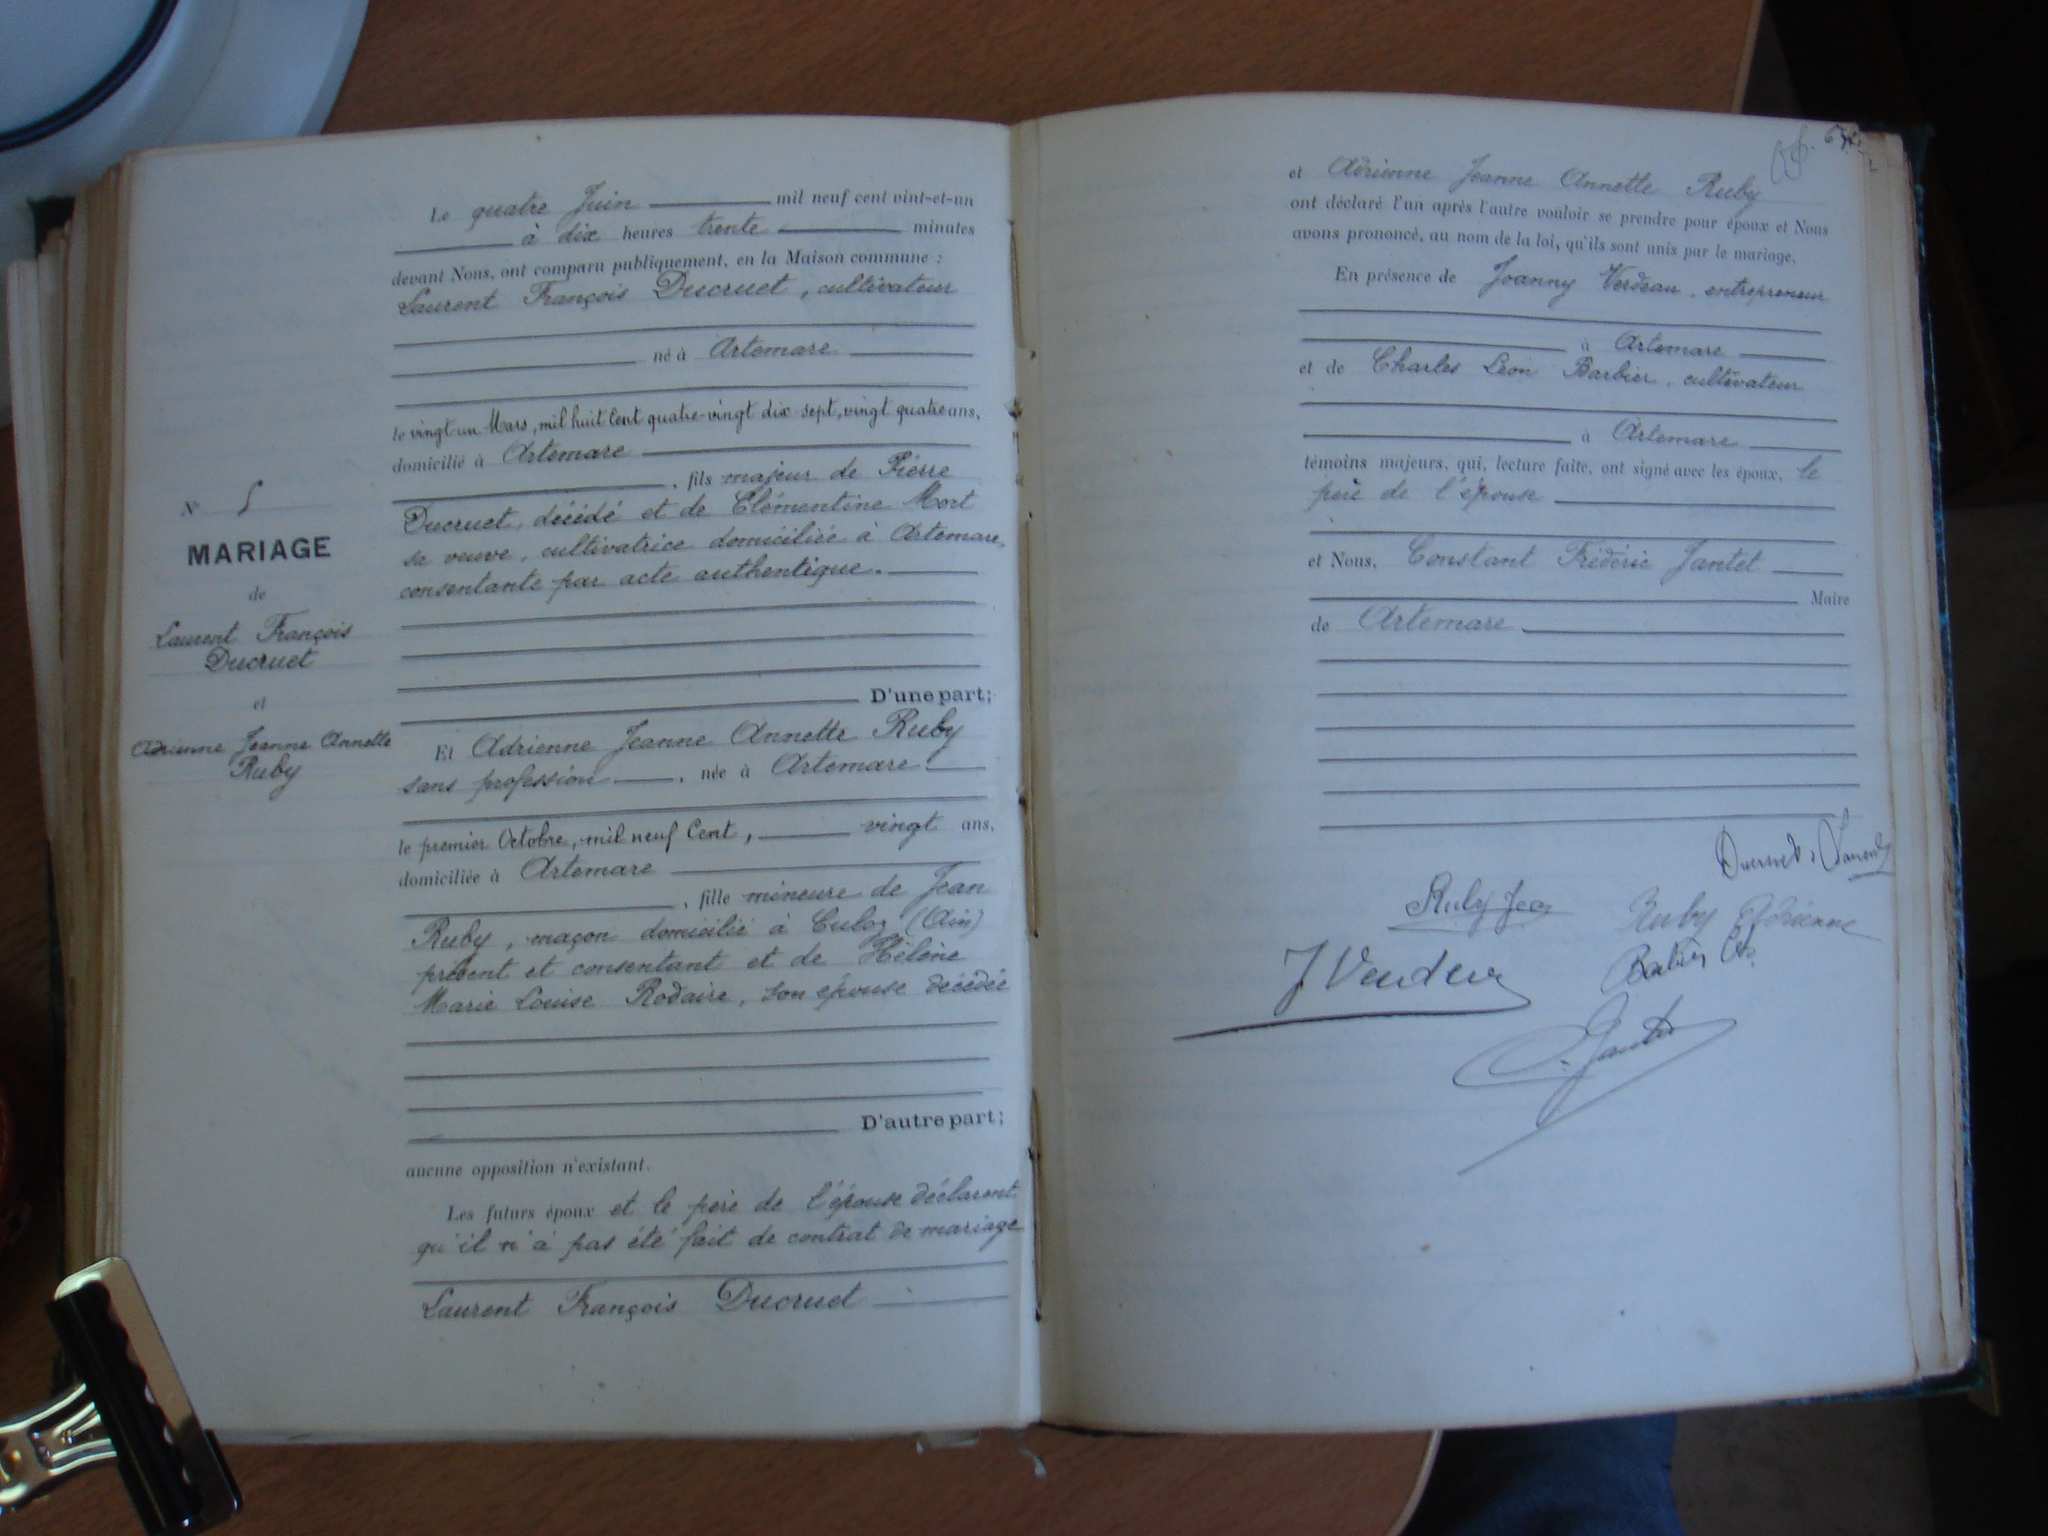 Nº 5
MARIAGE
de
Laurent François
Ducruet
et
Adrienne Jeanne Annette
Ruby
Le quatre Juin mil neuf cent vint-et-un
à dix heures trente minutes
devant Nous, ont comparu publiquement, en la Maison commune :
Laurent François Ducruet, cultivateur
né à Artemare
le vingt un Mars, mil huit Cent quatre-vingt dix-sept, vingt quatre ans,
domicilié à Artemare
, fils majeur de Pierre
Ducruet, décédé et de Clémentine Mort
sa veuve, cultivatrice domiciliée à Artemare,
consentante par acte authentique.
D'une part;
Et Adrienne Jeanne Annette Ruby
sans profession , née à Artemare
le premier Octobre, mil neuf Cent, vingt ans,
domiciliée à Artemare
, fille mineure de Jean
Ruby, maçon domicilié à Culoz (Ain)
présent et consentant et de Hélène
Marie Louise Rodaire, son épouse décédée
D'autre part;
aucune opposition n'existant.
Les futurs époux et le père de l'épouse déclarent
qu'il n'a pas été fait de contrat de mariage
Laurent François Ducruet
et Adrienne Jeanne Annette Ruby
ont déclaré l'un après l'autre vouloir se prendre pour époux et Nous
avons prononcé, au nom de la loi, qu'ils sont unis par le mariage.
En présence de Joanny Verdeau, entrepreneur
à Artemare
et de Charles Léon Barbier, cultivateur
à Artemare
témoins majeurs, qui, lecture faite, ont signé avec les époux, le
père de l'épouse
et Nous, Constant Frédéric Jantet
Maire
de Artemare
Ducruet Laurent
Ruby Jean Ruby Adrienne
J Verdeau Barbier Ch.
C. Jantet